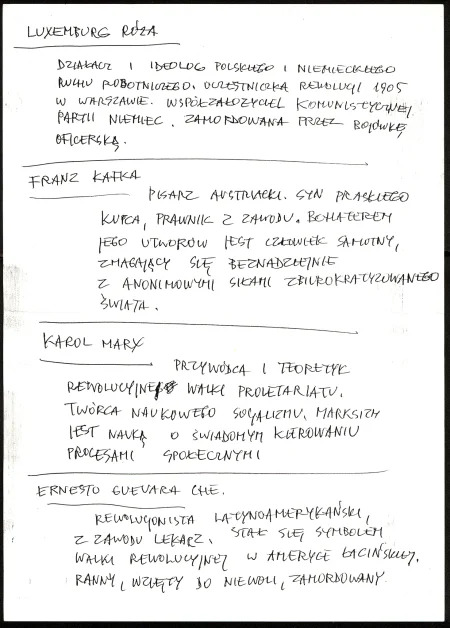 LUXEMBURG RÓŻA
DZIAŁACZ I IDEOLOG POLSKIEGO I NIEMIECKIEGO
RUCHU ROBOTNICZEGO. UCZESTNICZKA REWOLUCJI 1905
W WARSZAWIE. WSPÓŁZAŁOŻYCIEL KOMUNISTYCZNEJ
PARTII NIEMIEC. ZAMORDOWANA PRZEZ BOJÓWKĘ
OFICERSKĄ.
FRANZ KAFKA
PISARZ AUSTRIACKI. SYN PRASKIEGO
KUPCA, PRAWNIK Z ZAWODU. BOHATEREM
JEGO UTWORÓW JEST CZŁOWIEK SAMOTNY,
ZMAGAJĄCY SIĘ BEZNADZIEJNIE
Z ANONIMOWYMI SIŁAMI ZBIUROKRATYZOWANEGO
ŚWIATA.
KAROL MARX
PRZYWÓDCA I TEORETYK
REWOLUCYJNEJ WALKI PROLETARIATU.
TWÓRCA NAUKOWEGO SOCJALIZMU. MARKSIZM
JEST NAUKĄ O ŚWIADOMYM KIEROWANIU
PROCESAMI SPOŁECZNYMI
ERNESTO GUEVARA CHE.
REWOLUCJONISTA LATYNOAMERYKAŃSKI,
Z ZAWODU LEKARZ. STAŁ SIĘ SYMBOLEM
WALKI REWOLUCYJNEJ W AMERYCE ŁACIŃSKIEJ.
RANNY, WZIĘTY DO NIEWOLI, ZAMORDOWANY.